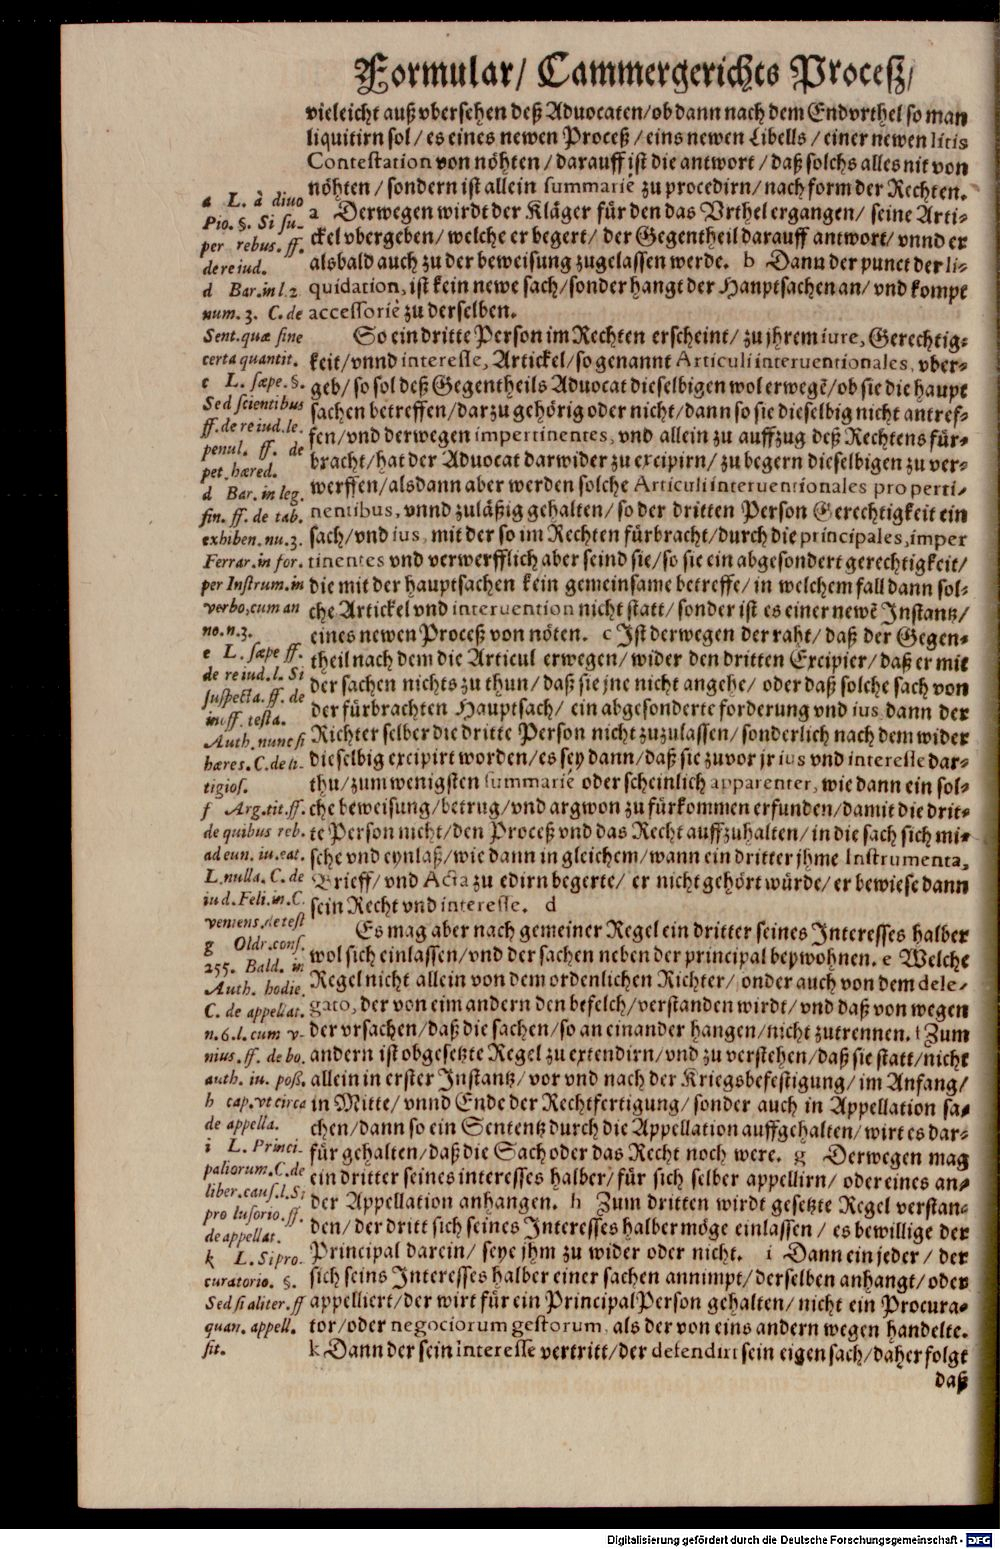 Formular/ Cammergerichts Proceſz/
vieleicht auß vberſehen deß Aduocaten/ ob dann nach dem Endvrthel ſo man
liquitirn ſol / es eines newen Proceß / eins newen Libells / einer newen litis
Conteſtation von nöhten / darauff iſt die antwort / daß ſolchs alles nit von
nöhten / ſondern iſt allein ſummariè zu procedirn / nach form der Rechten.
a Derwegen wirdt der Kläger für den das Vrthel ergangen/ ſeine Arti-
ckel vbergeben/ welche er begert/ der Gegentheil darauff antwort/ vnnd er
alsbald auch zu der beweiſung zugelaſſen werde. b Dann der punct der li-
quidation, iſt kein newe ſach/ ſonder hangt der Hauptſachen an/ vnd kompt
acceſſoriè zu derſelben.
So ein dritte Perſon im Rechten erſcheint/ zu jhrem iure, Gerechtig-
keit/ vnnd intereſſe, Artickel/ ſo genannt Articuli interuentionales, vber-
geb/ ſo ſol deß Gegentheils Aduocat dieſelbigen wol erwegē/ ob ſie die haupt
ſachen betreffen/ darzu gehörig oder nicht/ dann ſo ſie dieſelbig nicht antref-
fen/ vnd derwegen impertinentes, vnd allein zu auffzug deß Rechtens für-
bracht/ hat der Aduocat darwider zu excipirn/ zu begern dieſelbigen zu ver-
werffen/ alsdann aber werden ſolche Articuli interuentionales pro perti-
nentibus, vnnd zuläßig gehalten/ ſo der dritten Perſon Gerechtigkeit ein
ſach/ vnd ius, mit der ſo im Rechten fürbracht/ durch die principales, imper
tinentes vnd verwerfflich aber ſeind ſie/ ſo ſie ein abgeſondert gerechtigkeit/
die mit der hauptſachen kein gemeinſame betreffe/ in welchem fall dann ſol-
che Artickel vnd interuention nicht ſtatt/ ſonder iſt es einer newē Inſtantz/
eines newen Proceß von nöten. c Iſt derwegen der raht/ daß der Gegen-
theil nach dem die Articul erwegen/ wider den dritten Excipier/ daß er mit
der ſachen nichts zu thun/ daß ſie jne nicht angehe/ oder daß ſolche ſach von
der fürbrachten Hauptſach/ ein abgeſonderte forderung vnd ius dann der
Richter ſelber die dritte Perſon nicht zuzulaſſen/ ſonderlich nach dem wider
dieſelbig excipirt worden/ es ſey dann/ daß ſie zuvor jr ius vnd intereſſe dar-
thu/ zum wenigſten ſummariè oder ſcheinlich apparenter, wie dann ein ſol-
che beweiſung/ betrug/ vnd argwon zu fürkommen erfunden/ damit die drit-
te Perſon nicht/ den Proceß vnd das Recht auffzuhalten/ in die ſach ſich mi-
ſche vnd eynlaß/ wie dann in gleichem/ wann ein dritter jhme Inſtrumenta,
Brieff/ vnd Acta zu edirn begerte/ er nicht gehört würde/ er bewieſe dann
ſein Recht vnd intereſſe. d
Es mag aber nach gemeiner Regel ein dritter ſeines Intereſſes halber
wol ſich einlaſſen/ vnd der ſachen neben der principal beywohnen. e Welche
Regel nicht allein von dem ordenlichen Richter/ ſonder auch von dem dele-
gato, der von eim andern den befelch/ verſtanden wirdt/ vnd daß von wegen
der vrſachen/ daß die ſachen/ ſo an einander hangen/ nicht zutrennen. f Zum
andern iſt obgeſetzte Regel zu extendirn/ vnd zu verſtehen/ daß ſie ſtatt/ nicht
allein in erſter Inſtantz/ vor vnd nach der Kriegsbefeſtigung/ im Anfang/
in Mitte/ vnnd Ende der Rechtfertigung/ ſonder auch in Appellation ſa-
chen/ dann ſo ein Sententz durch die Appellation auffgehalten/ wirt es dar-
für gehalten/ daß die Sach oder das Recht noch were. g Derwegen mag
ein dritter ſeines intereſſes halber/ für ſich ſelber appellirn/ oder eines an-
der Appellation anhangen. h Zum dritten wirdt geſetzte Regel verſtan-
den/ der dritt ſich ſeines Intereſſes halber möge einlaſſen / es bewillige der
Principal darein/ ſeye jhm zu wider oder nicht. i Dann ein jeder / der
ſich ſeins Intereſſes halber einer ſachen annimpt/ derſelben anhangt/ oder
appelliert/ der wirt für ein Principal Perſon gehalten/ nicht ein Procura-
tor/ oder negociorum geſtorum, als der von eins andern wegen handelte.
k Dann der ſein intereſſe vertritt/ der defendirt ſein eigen ſach/ daher folgt
daß
a L. à diuo
Pio. §. Si ſu-
per rebus. ff.
de re iud.
d Bar. in l. 2
num. 3. C. de
Sent. quæ ſine
certa quantit.
c L. ſæpe. §.
Sed ſcientibus
ff. de re iud. le.
penul. ff. de
pet. hæred.
d Bar. in leg.
fin. ff. de tab.
exhiben. nu. 3.
Ferrar. in for.
per Inſtrum. in
verbo, cum an
no. n. 3.
e L. ſæpe ff.
de re iud. l. Si
ſuſpecta. ff. de
inoff. teſta.
Auth. nunc ſi
hæres. C. de li-
tigioſ.
f Arg. tit. ff.
de quibus reb.
ad eun. iu. eat.
L. nulla. C. de
iud. Feli. in. C.
veniens. de teſt
g Oldr. conſ.
255. Bald. in
Auth. hodie.
C. de appellat.
n. 6. l. cum v-
nius. ff. de bo.
auth. iu. poß.
h cap. vt circa
de appella.
i L. Princi-
paliorum. C. de
liber. cauſ. l. Si
pro luſorio. ff.
de appellat.
k L. Si pro-
curatorio. §.
Sed ſi aliter. ff
quan. appell.
ſit.
Digitalisierung gefördert durch die Deutsche Forschungsgemeinschaft - DFG